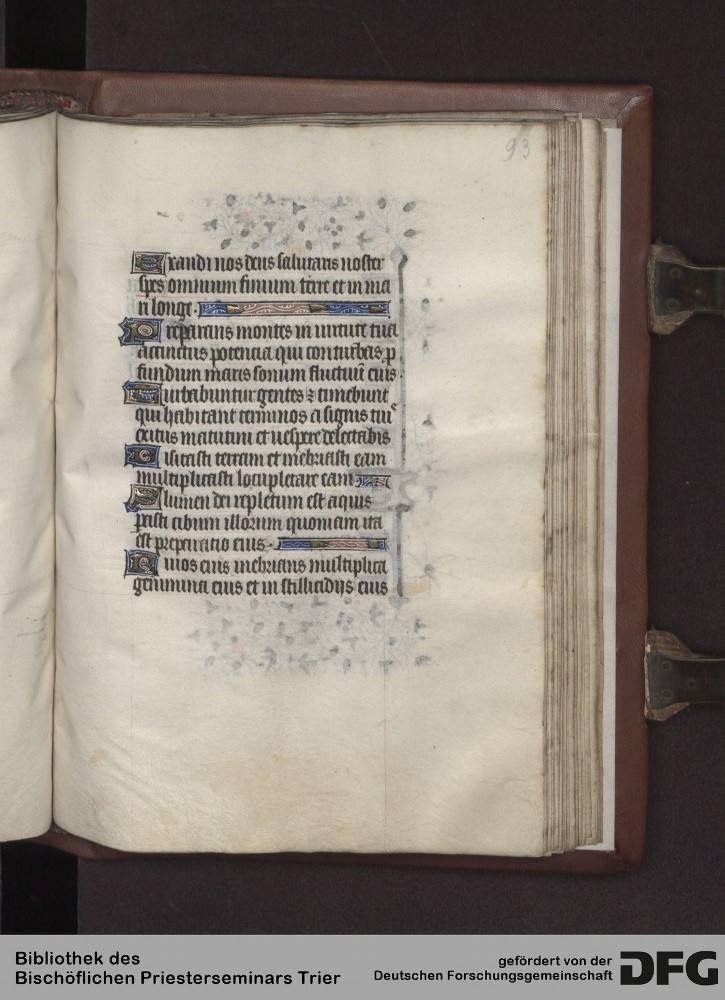 93
Exaudi nos deus salutaris noster
spes omnium finium terre et in ma
ri longe.
Preparans montes in uirtute tua
accinctus potencia qui conturbas p
fundum maris sonum fluctuū eius.
Turbabuntur gentes & timebunt
qui habitant terminos a signis tuis
exitus matutini et uespere delectabis
Uisitasti terram et inebriasti eam
multiplicasti locupletare eam
Flumen dei repletum est aquis
parasti cibum illorum quoniam ita
est preparatio eius.
Riuos eius inebrians multiplica
genimina eius et in stillicidijs eius
Bibliothek des
Bischöflichen Priesterseminars Trier
gefördert von der
Deutschen Forschungsgemeinschaft
DFG